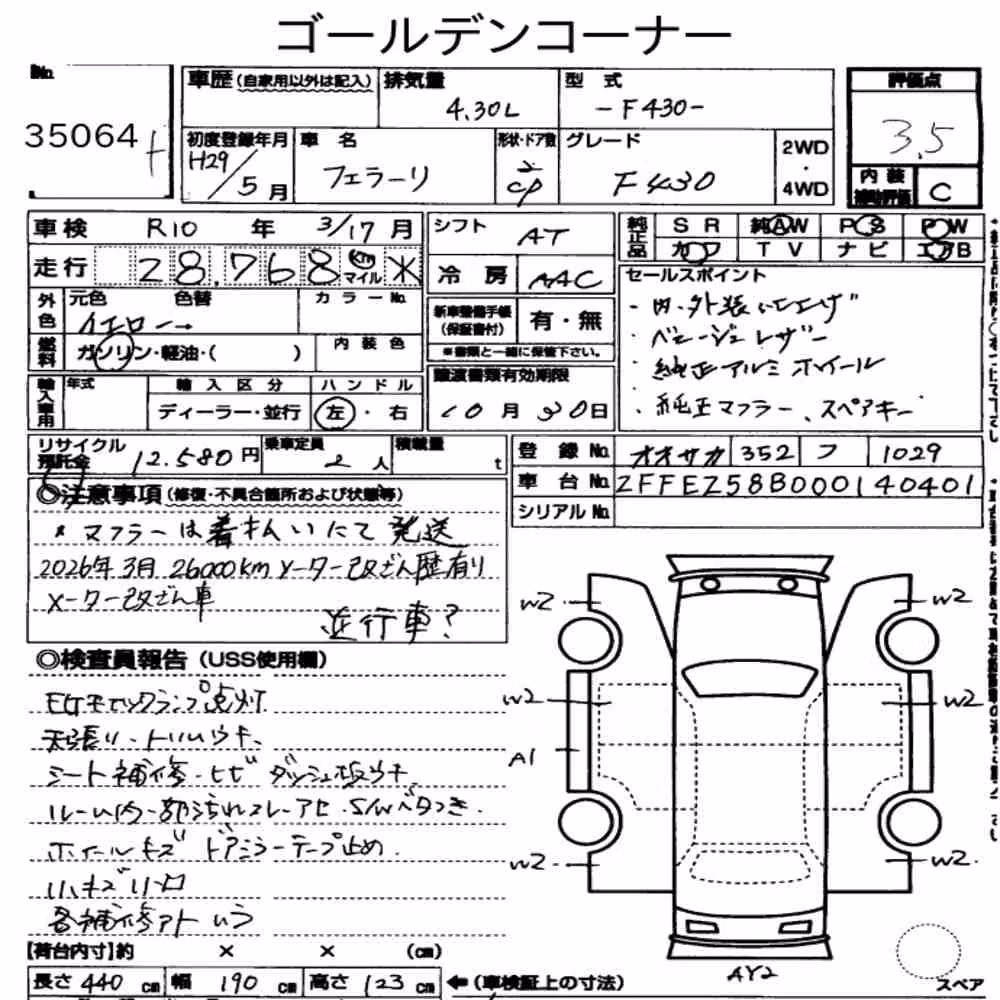 ゴールデンコーナー
No.
35064
車歴(自家用以外は記入)
排気量
4.30L
型式
-F430-
評価点
3.5
初度登録年月
H29/5月
車名
フェラーリ
形状・ドア数
2
CP
グレード
F430
2WD
・
4WD
内装
補助評価
C
車検 R10 年 3/17月
走行 28,768 km マイル
外色
元色 色替
イエロー→
カラーNo.
燃料
ガソリン・軽油・( )
内装色
輸入車用
年式
輸入区分
ディーラー・並行
ハンドル
左・右
シフト AT
冷房 AAC
新車整備手帳
(保証書付)
有・無
※書類と一緒に保管下さい。
譲渡書類有効期限
10月30日
純正品
SR 純AW PS PW
カワ TV ナビ エアB
セールスポイント
・内・外装
・ベージュレザー
・純正アルミホイール
・純正マフラー、スペアキー
リサイクル
預託金
12.580円
乗車定員
2人
積載量
t
登録No. オオサカ 352 フ 1029
車台No. ZFFEZ58B000140401
シリアルNo.
◎注意事項(修復・不具合箇所および状態等)
マフラーは着払いにて発送
2026年3月 26000km メーター改ざん歴有り
メーター改ざん車
並行車?
◎検査員報告(USS使用欄)
EGチェックランプ点灯
天張り・トリムウキ、
シート補修・ヒビ ダッシュ板ウキ
ルーム内一部汚れスレ・アセ・S/Wベタつき.
ホイールキズ ドアミラーテープ止め.
小キズ凹
各補修アト ムラ
W2
W2
W2
W2
A1
W2
W2
AY2
スペア
【荷台内寸】約 × × (cm)
長さ 440 cm 幅 190 cm 高さ 123 cm ←(車検証上の寸法)